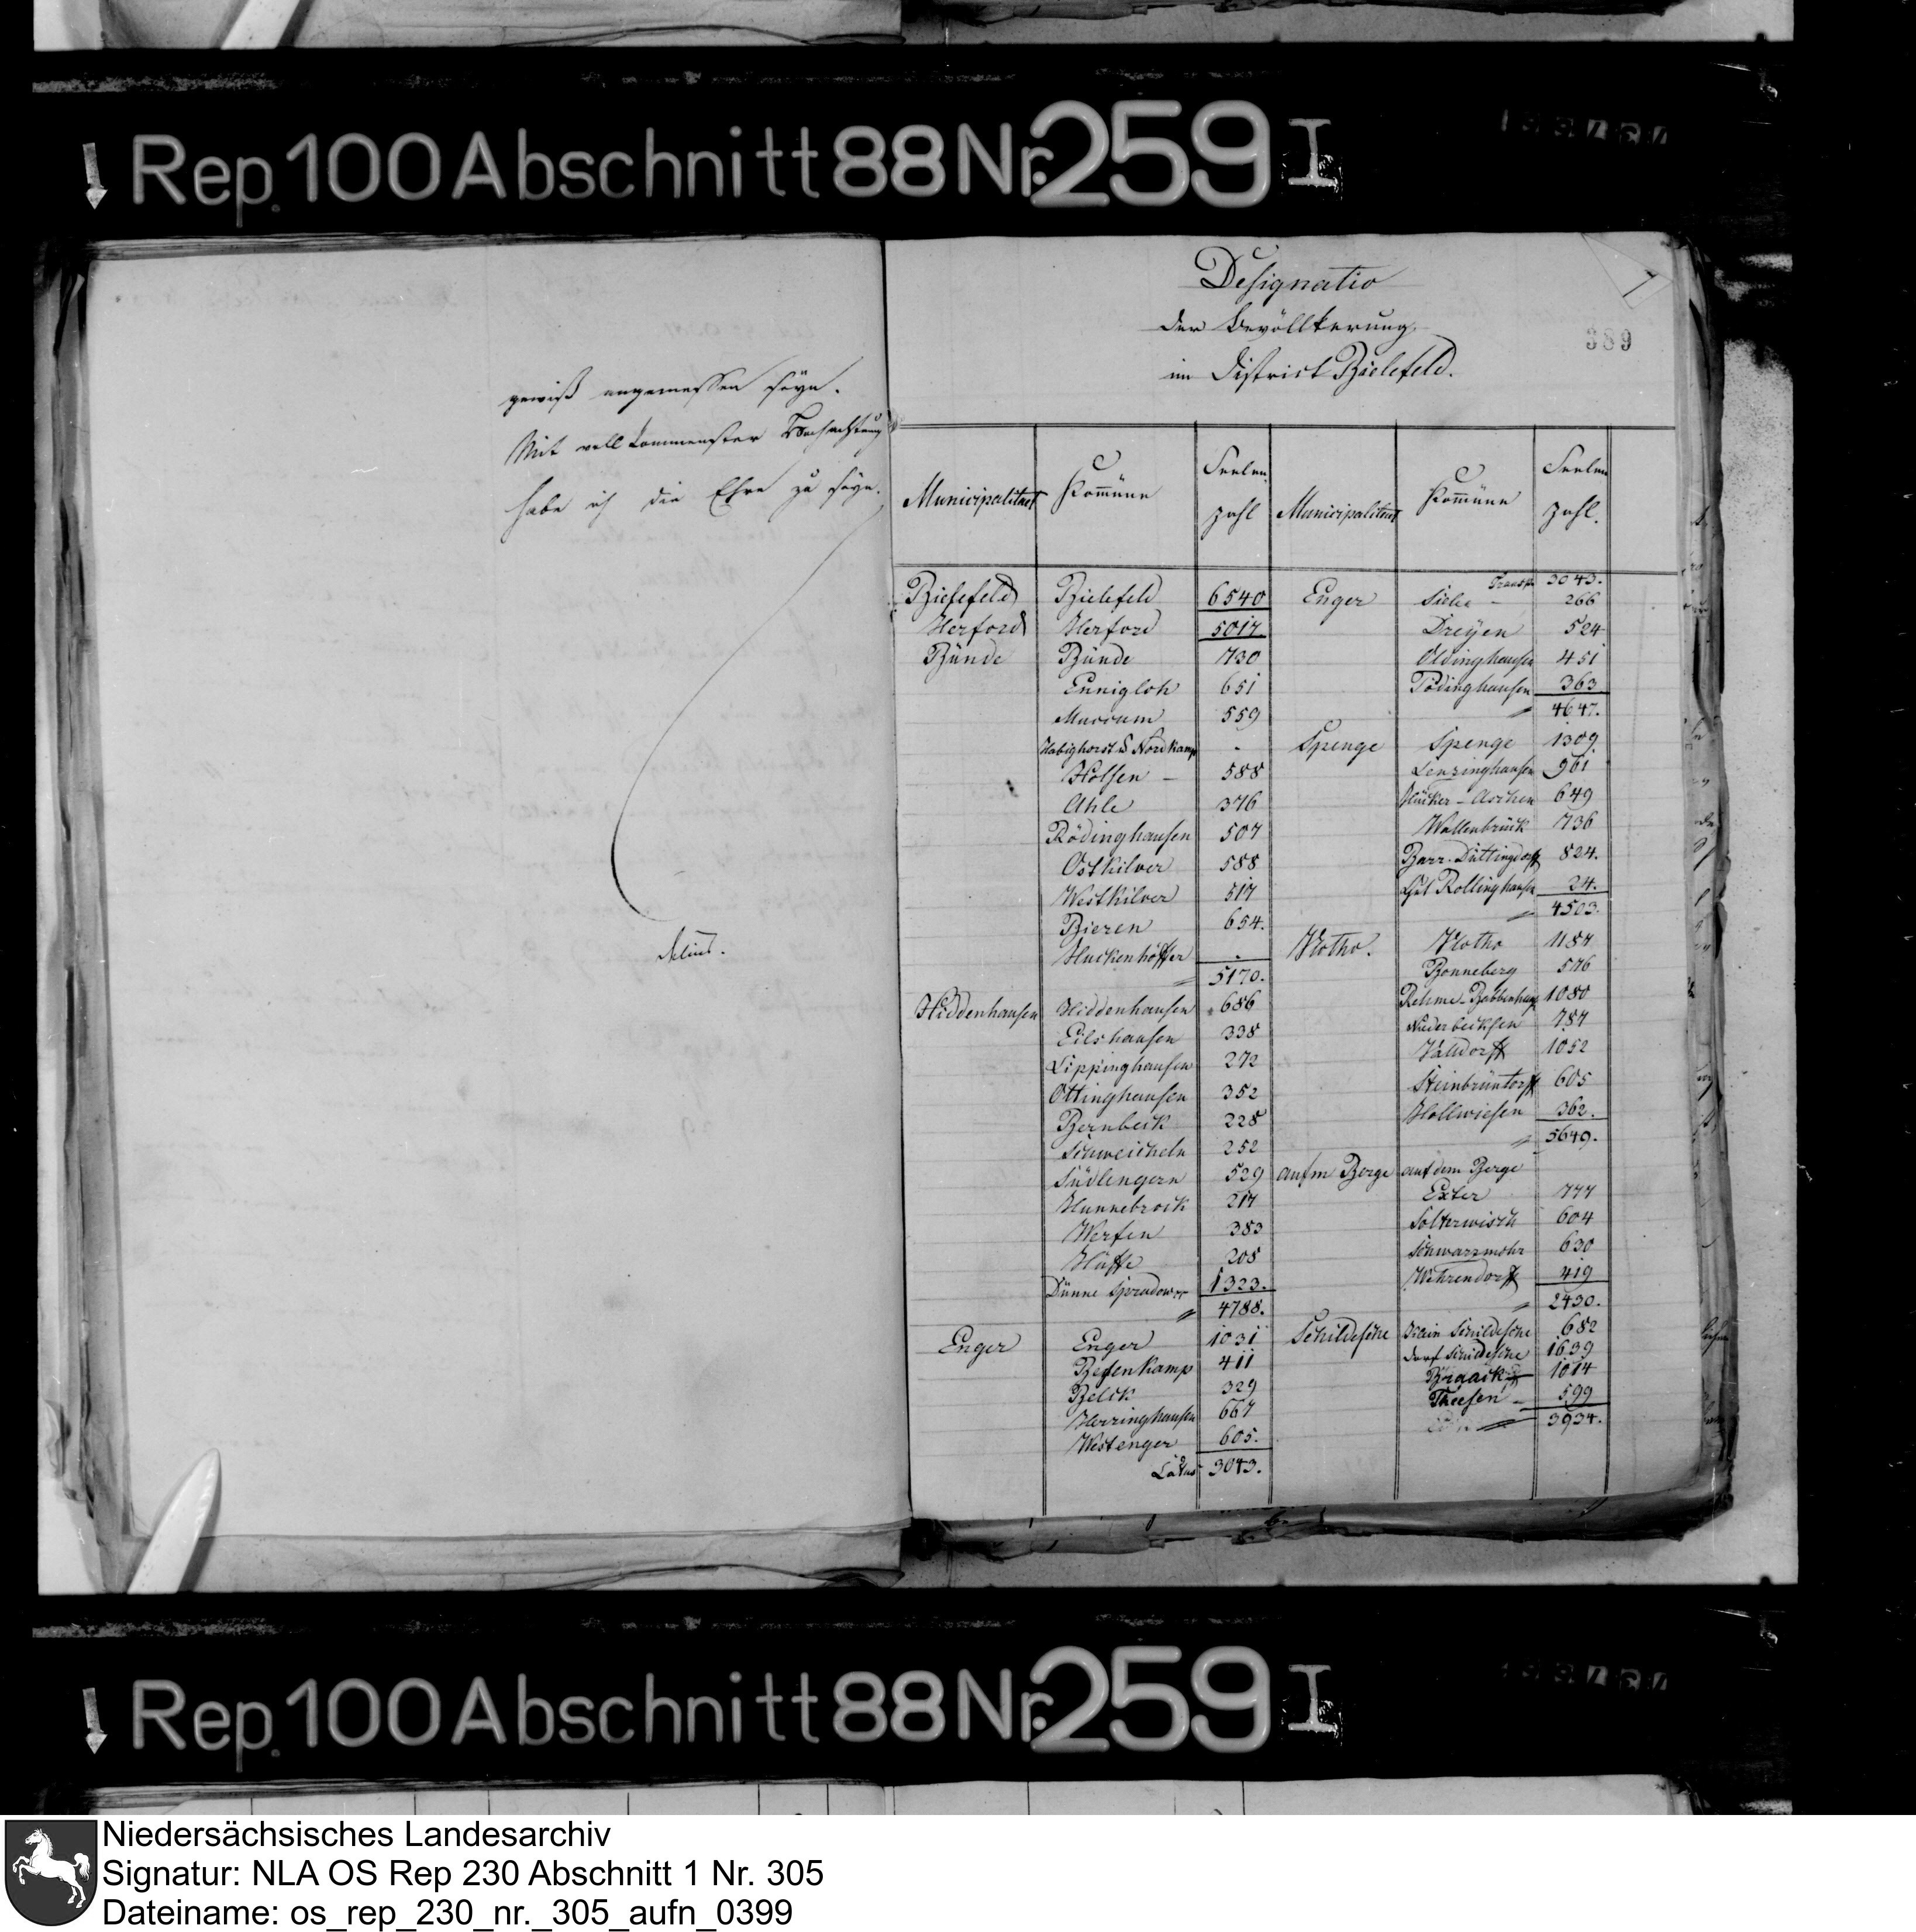 Rep. 100 Abschnitt 88 Nr. 259 I
gewiß angemessen seyn.
Mit vollkommenster Hochachtung
habe ich die Ehre zu seyn.
Delius.
Designatio
der Bevöllkerung
im District Bielefeld.
1
389
Municipalitaet Kom̄üne Seelen zahl Municipalitaet Kom̄üne Seelen zahl.
Bielefeld Bielefeld 6540
Herford Herford 5017
Bünde Bünde 730
Ennigloh 651
Muccum 559
Habighorst & Nordkamp -
Holsen - 588
Ahle 376
Rödinghausen 507
Ostkilver 588
Westkilver 517
Bieren 654.
Huckenhöffer -
" 5170.
Hiddenhausen Hiddenhausen 686
Eilshausen 338
Lippinghausen 272
Ottinghausen 352
Bernbeck 228
Schweicheln 252
Südlengern 529
Hunnebrock 217
Werfen 383
Hüffe 208
Dünne Spradow 1323.
" 4788.
Enger Enger 1031
Besenkamp 411
Belck 329
Herringhausen 667
Westenger 605.
Latus 3043.
Transp. 3043.
Enger Siele - 266
Dreyen 524
Oldinghausen 451
Pödinghausen 363
" 4647.
Spenge Spenge 1309.
Lenzinghausen 961
Hücker-Aschen 649
Wallenbrück 736
Barr. Düttingdorff 824.
Gut Rollinghausen 24.
" 4503.
Vlotho. Vlotho 1187
Bonneberg 576
Rehme-Babbenhausen 1080
Niederbecksen 787
Valldorff 1052
Steinbründorff 605
Hollwiesen 362.
" 5649.
aufm Berge auf dem Berge
Exter 777
Solterwisch 604
Schwarzmohr 630
Wehrendorff 419
" 2430.
Schildesche Stein Schildesche 682
Dorf Schildesche 1639
Braack 1014
Theesen - 599
" 3934.
Rep. 100 Abschnitt 88 Nr. 259 I
Niedersächsisches Landesarchiv
Signatur: NLA OS Rep 230 Abschnitt 1 Nr. 305
Dateiname: os_rep_230_nr._305_aufn_0399